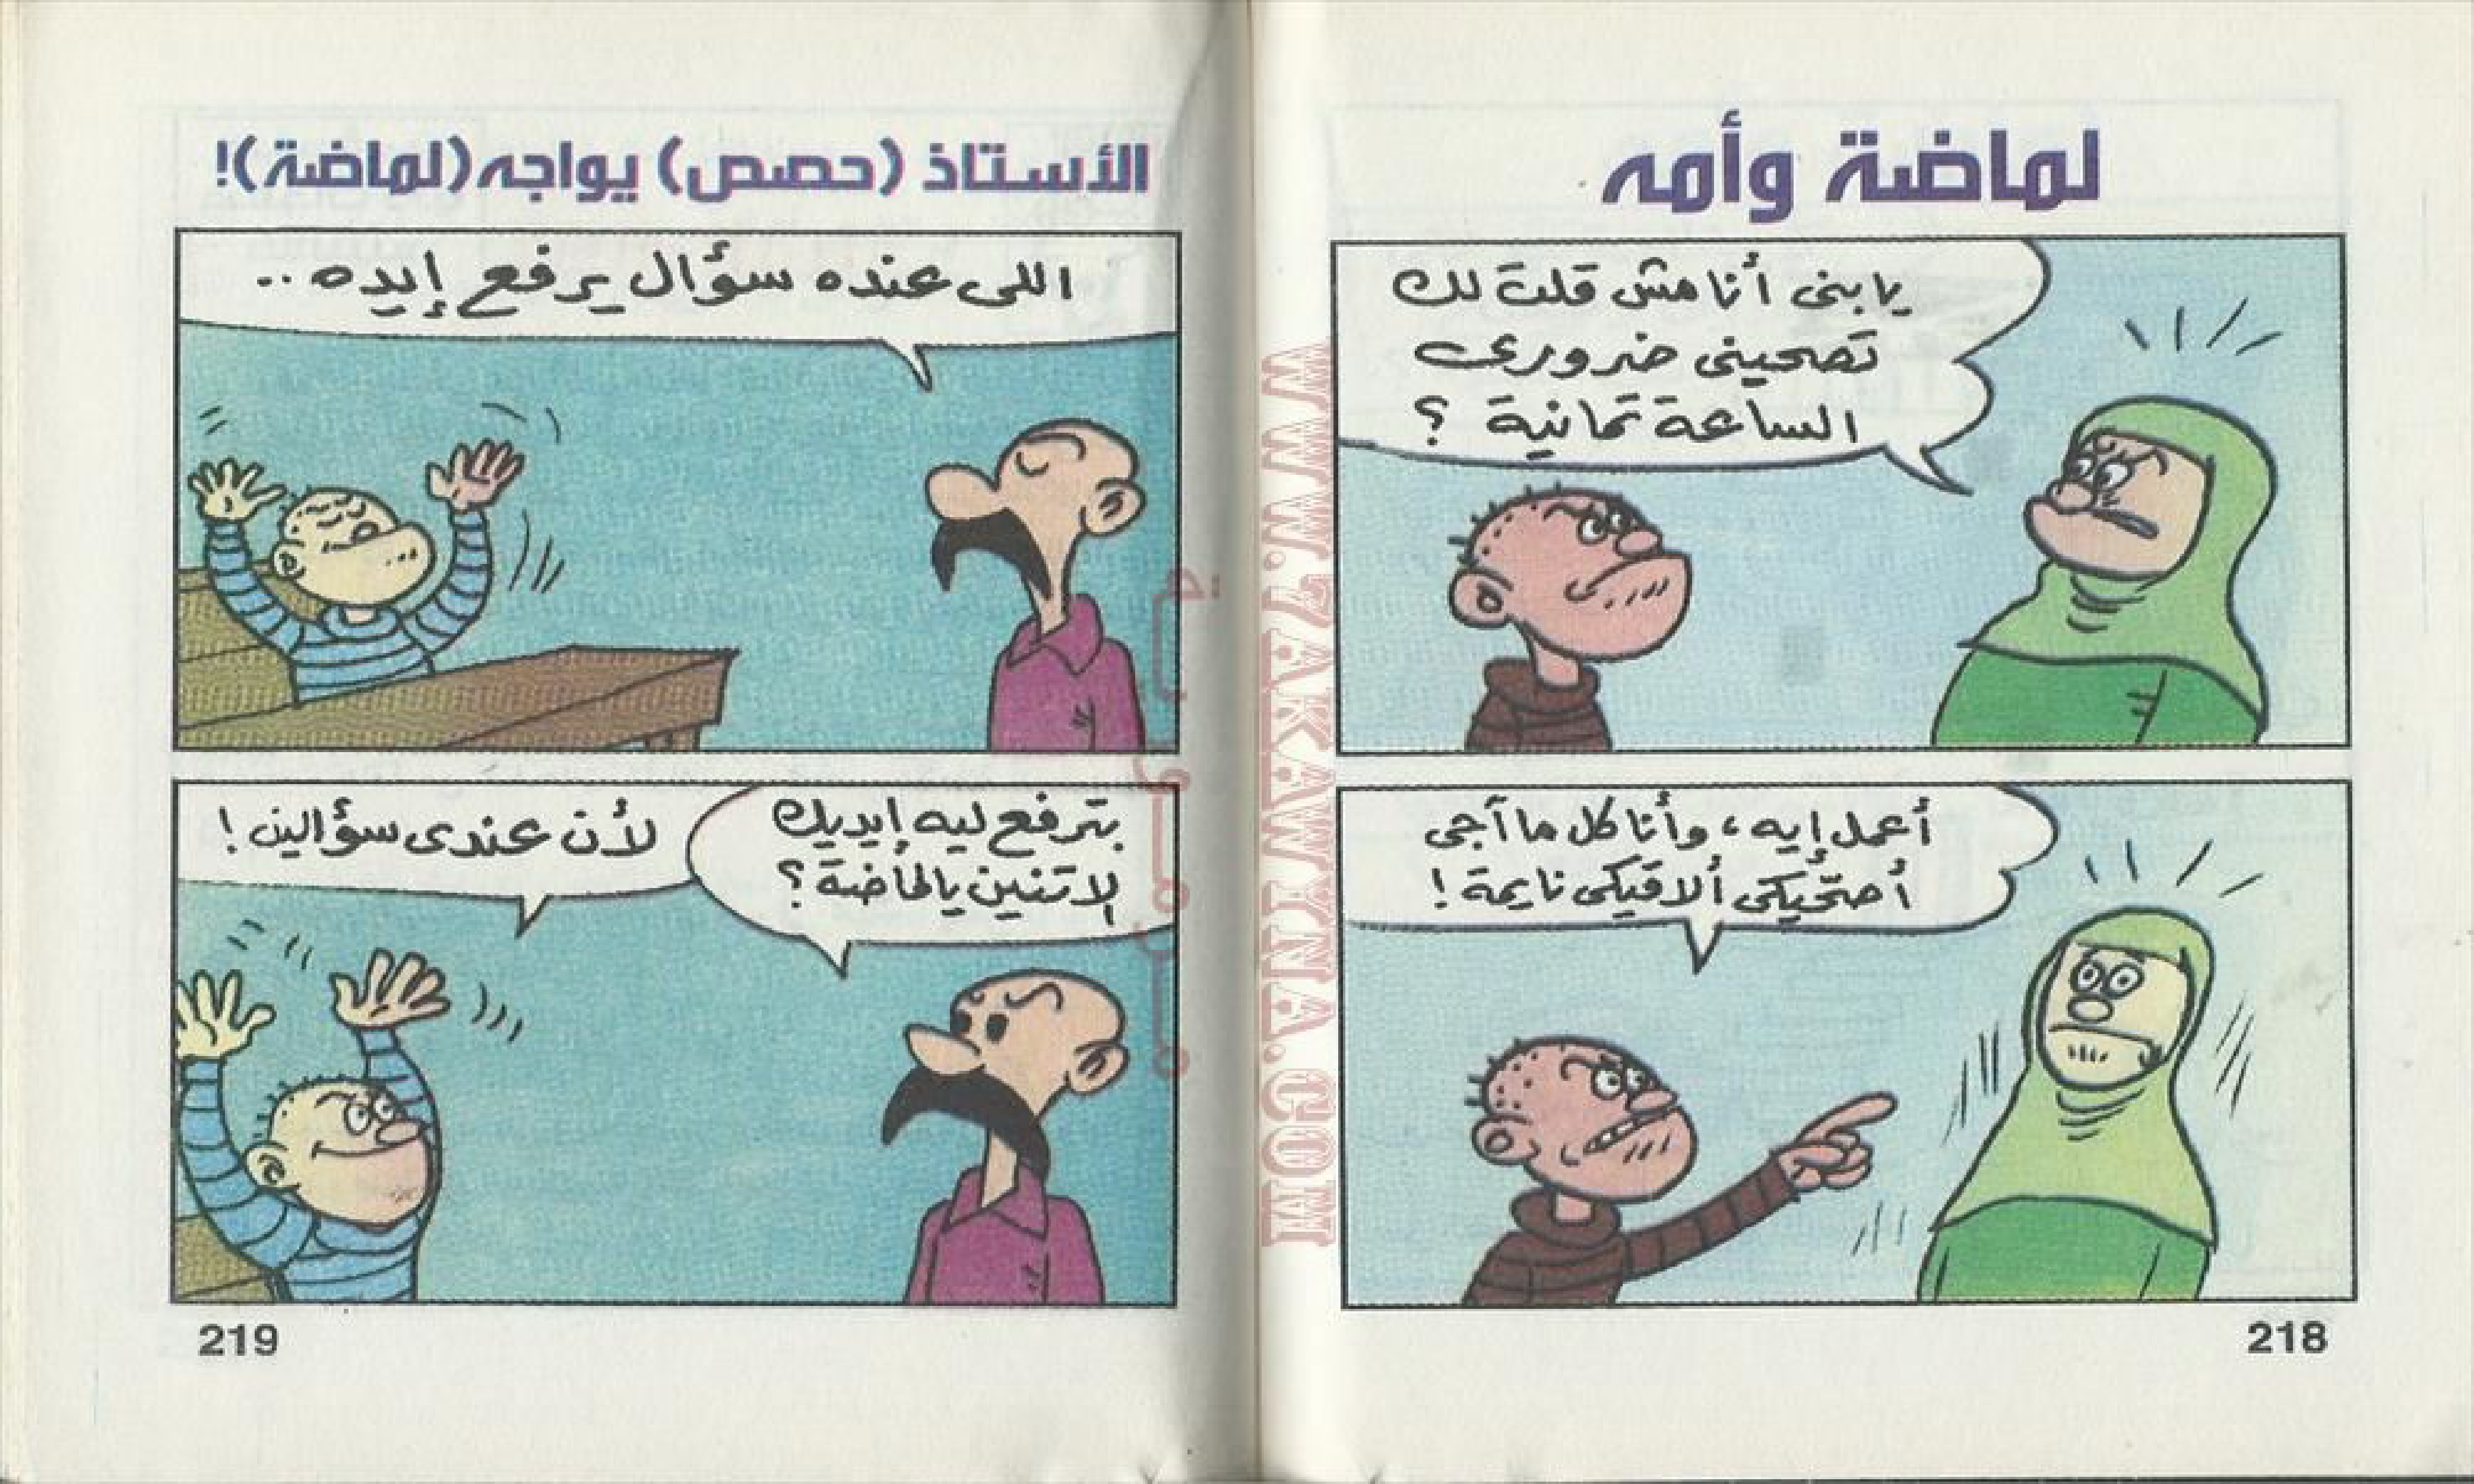 لماضة وأمه
يا بنى أنا مش قلت لك
تصحينى ضرورى
الساعة تمانية ؟
أعمل إيه، وأنا كل ما آجى
أصحّيكى ألاقيكى نايمة !
218
WWW.ZARKAWNNA.COM
الأستاذ (حصص) يواجه (لماضة)!
اللى عنده سؤال يرفع إيده ..
بترفع ليه إيديك
الاتنين يا لماضة ؟
لأن عندى سؤالين !
219